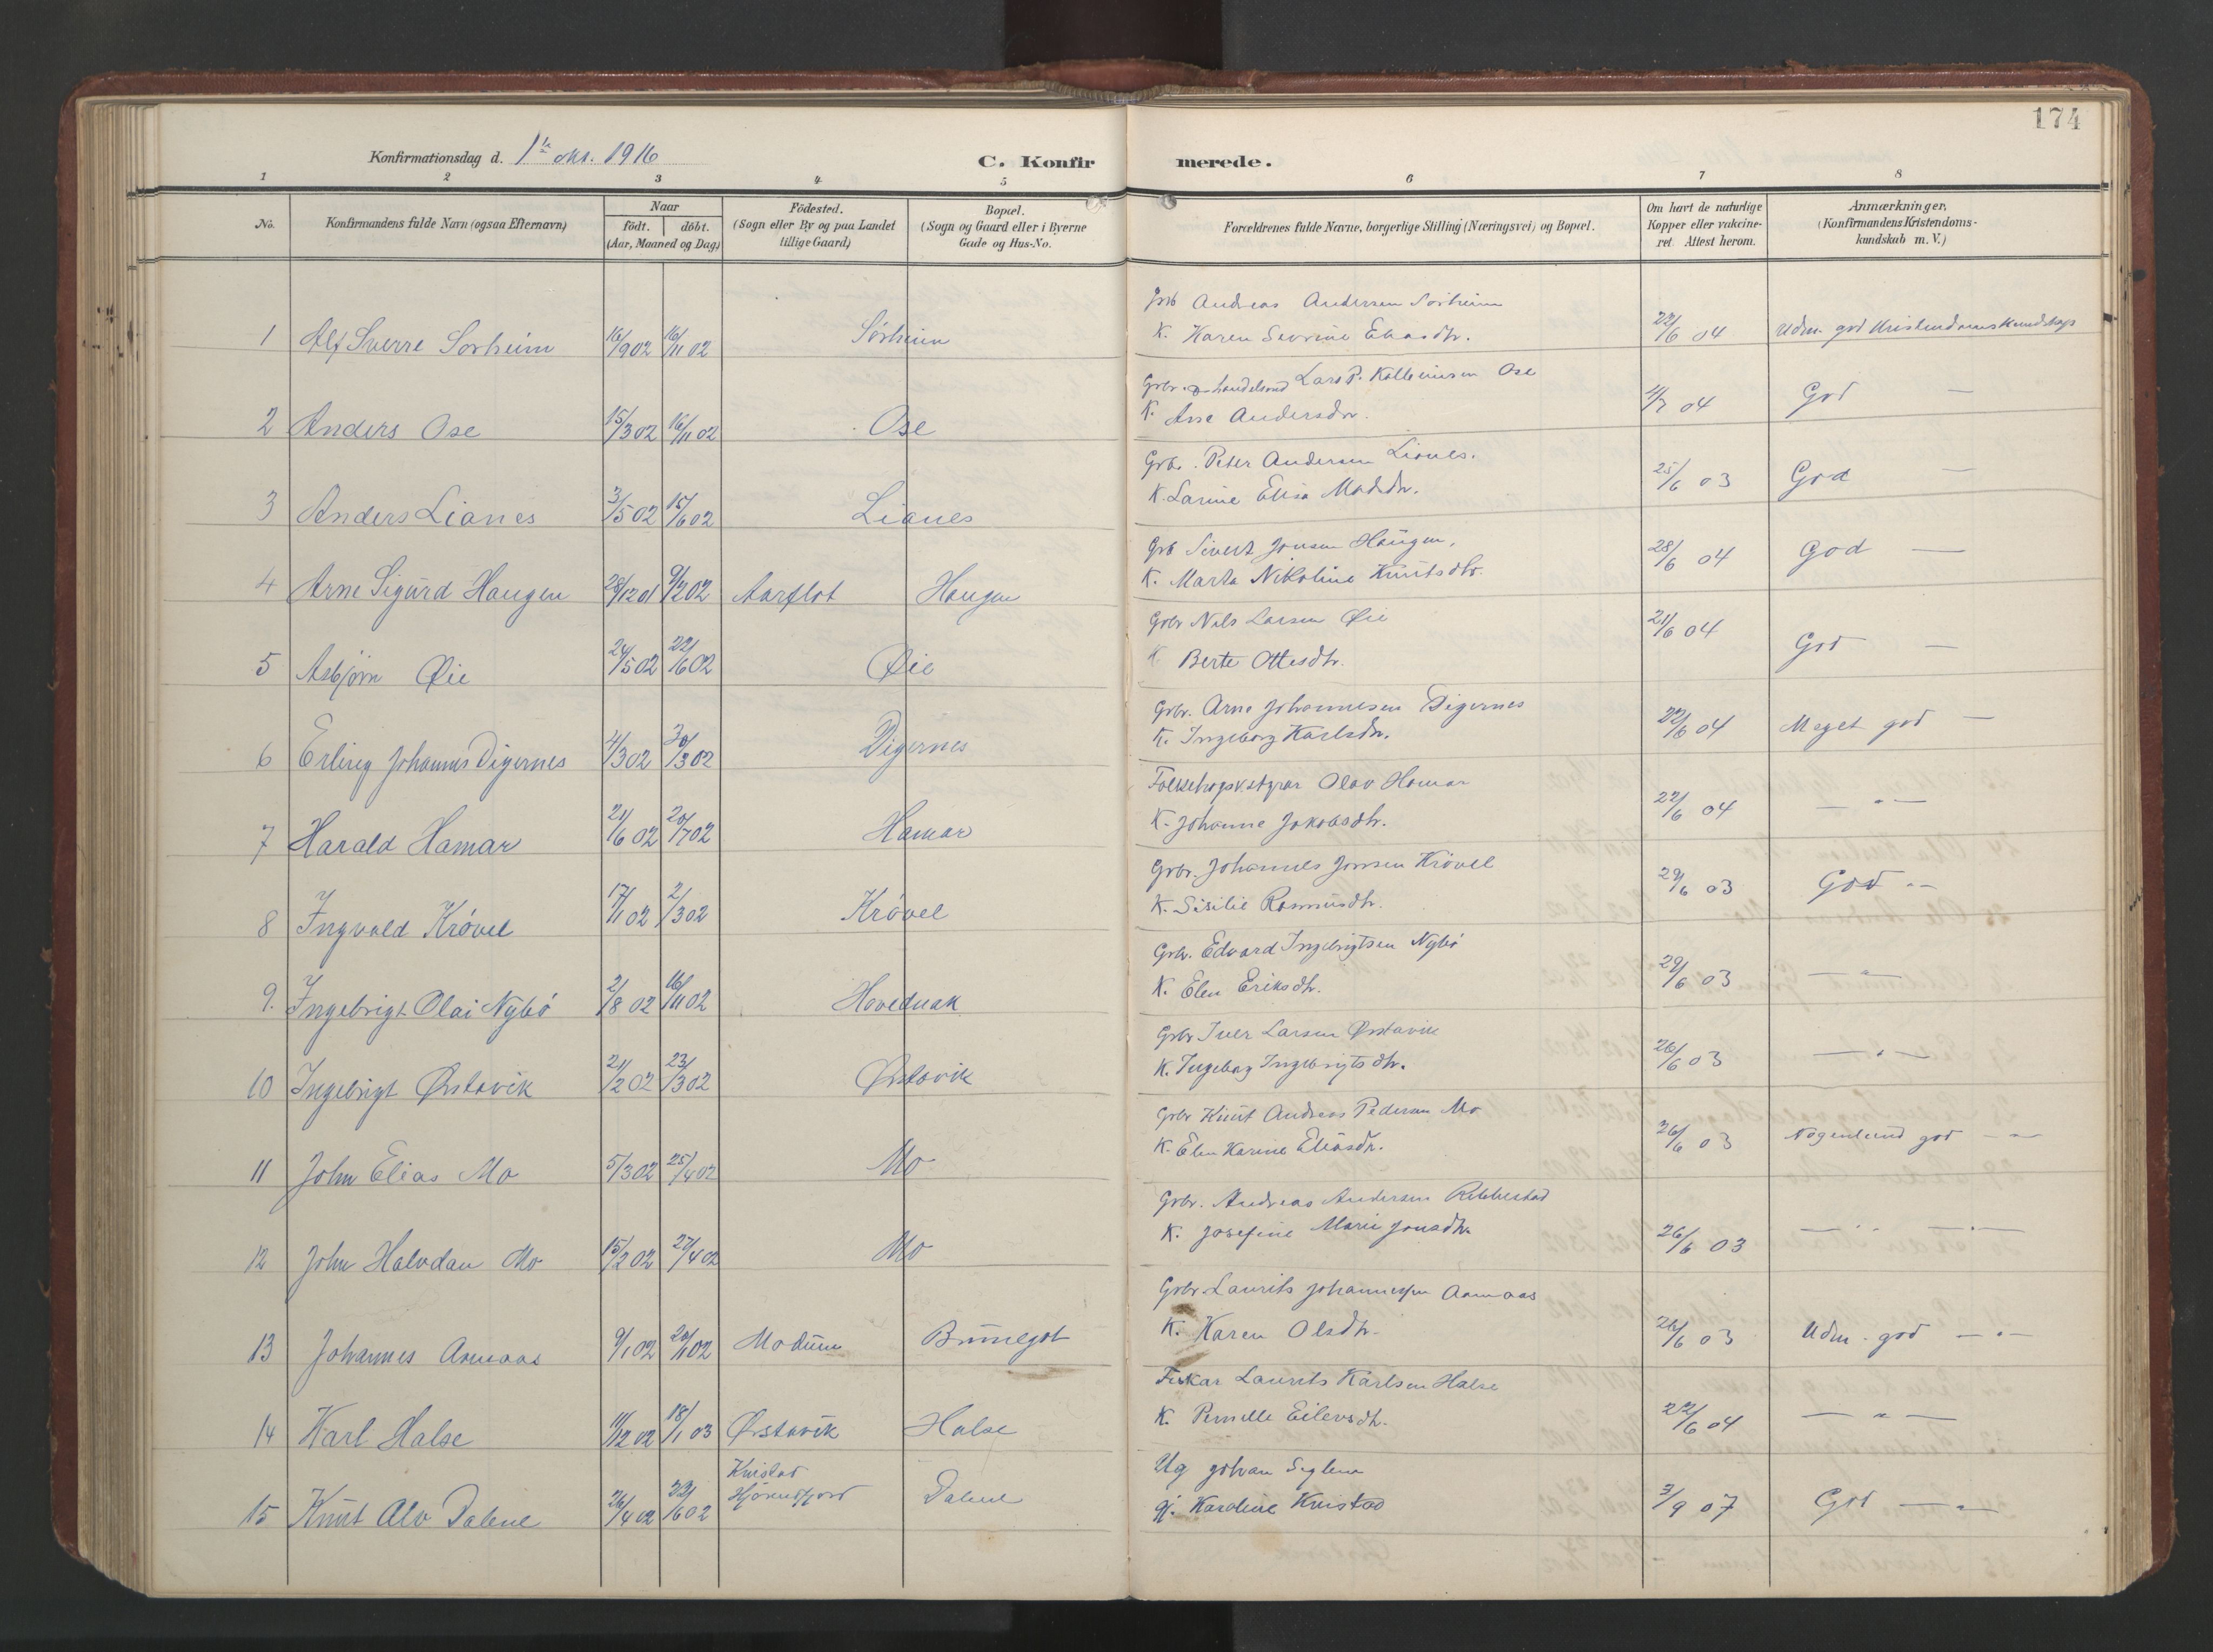 174
Konfirmationsdag d. 1ste okt. 1916
C. Konfirmerede.
1 2 3 4 5 6 7 8
No. Konfirmandens fulde Navn (ogsaa Efternavn) Naar født. døbt. (Aar, Maaned og Dag) Födested. (Sogn eller By og paa Landet tillige Gaard) Bopæl. (Sogn og Gaard eller i Byerne Gade og Hus-No. Forældrenes fulde Navne, borgerlige Stilling (Næringsvei) og Bopæl. Om havt de naturlige Kopper eller vakcineret Attest herom. Anmærkninger. (Konfirmandens Kristendomskundskab m. V.)
Grb Andreas Andersen Sørheim
1 Alf Sverre Sørheim 16/9 02 16/11 02 Sørheim K. Karen Severine Eliasdtr. 22/6 04 Udm. god Kristendomskundskap
Grbr. og handelsmd Lars P. Kolbeinsen Ose
2 Anders Ose 15/3 02 16/11 02 Ose K. Ane Andersdtr. 4/7 04 God —
Grbr. Peter Andersen Lianes.
3 Anders Lianes 3/5 02 15/6 02 Lianes K. Larine Elisa Madsdtr. 25/6 03 God —
Grb Sivert Jonsen Haugen,
4 Arne Sigurd Haugen 28/12 01 9/2 02 Aarflot Haugen K. Marta Nikoline Knutsdtr. 28/6 04 God —
Grbr Nils Larsen Øie
5 Asbjørn Øie 24/5 02 22/6 02 Øie K Berte Ottesdtr. 21/6 04 God —
Grbr. Arne Johannesen Digernes
6 Erling Johannes Digernes 4/3 02 30/3 02 Digernes K. Ingeborg Karlsdtr. 22/6 04 Meget god —
Folkehøgsk.styrar Olav Hamar
7 Harald Hamar 21/6 02 20/7 02 Hamar K. Johanne Jakobsdtr. 22/6 04 — " —
Grbr. Johannes Jonsen Krøvel
8 Ingvald Krøvel 17/1 02 2/3 02 Krøvel K. Sisilie Rasmusdtr. 29/6 03 God - -
Grbr. Edvard Ingebrigtsen Nybø
9. Ingebrigt Olai Nybø 2/8 02 16/11 02 Hovednak K. Elen Eriksdtr. 29/6 03 — " —
Grbr Iver Larsen Ørstavik
10 Ingebrigt Ørstavik 21/2 02 23/3 02 Ørstavik K. Ingeborg Ingebrigtsdtr. 26/6 03 — " —
Grbr Knut Andreas Pedersen Mo
11 John Elias Mo 5/3 02 25/4 02 Mo K. Elen Karine Eliasdtr. 26/6 03 Nogenlund god — " —
Grbr. Andreas Andersen Rebbestad
12 John Halvdan Mo 15/2 02 27/4 02 Mo K. Josefine Marie Jonsdtr. 26/6 03 — " — — " —
Grbr. Laurits Johannesen Aamaas
13 Johannes Aamaas 9/1 02 Modum Brunegot K. Karen Olsdtr. 26/6 03 Udm. god — " —
Fiskar Laurits Karlsen Halse
14 Karl Halse 11/12 02 18/1 03 Ørstavik Halse K. Pernille Eilevsdtr. 22/6 04 — " —
Ug Johan Seglem
15 Knut Alv Dalene 26/4 02 22/6 02 Kvistad Hjørundfjord Dalene gj. Karoline Kvistad 3/9 07 God — " —